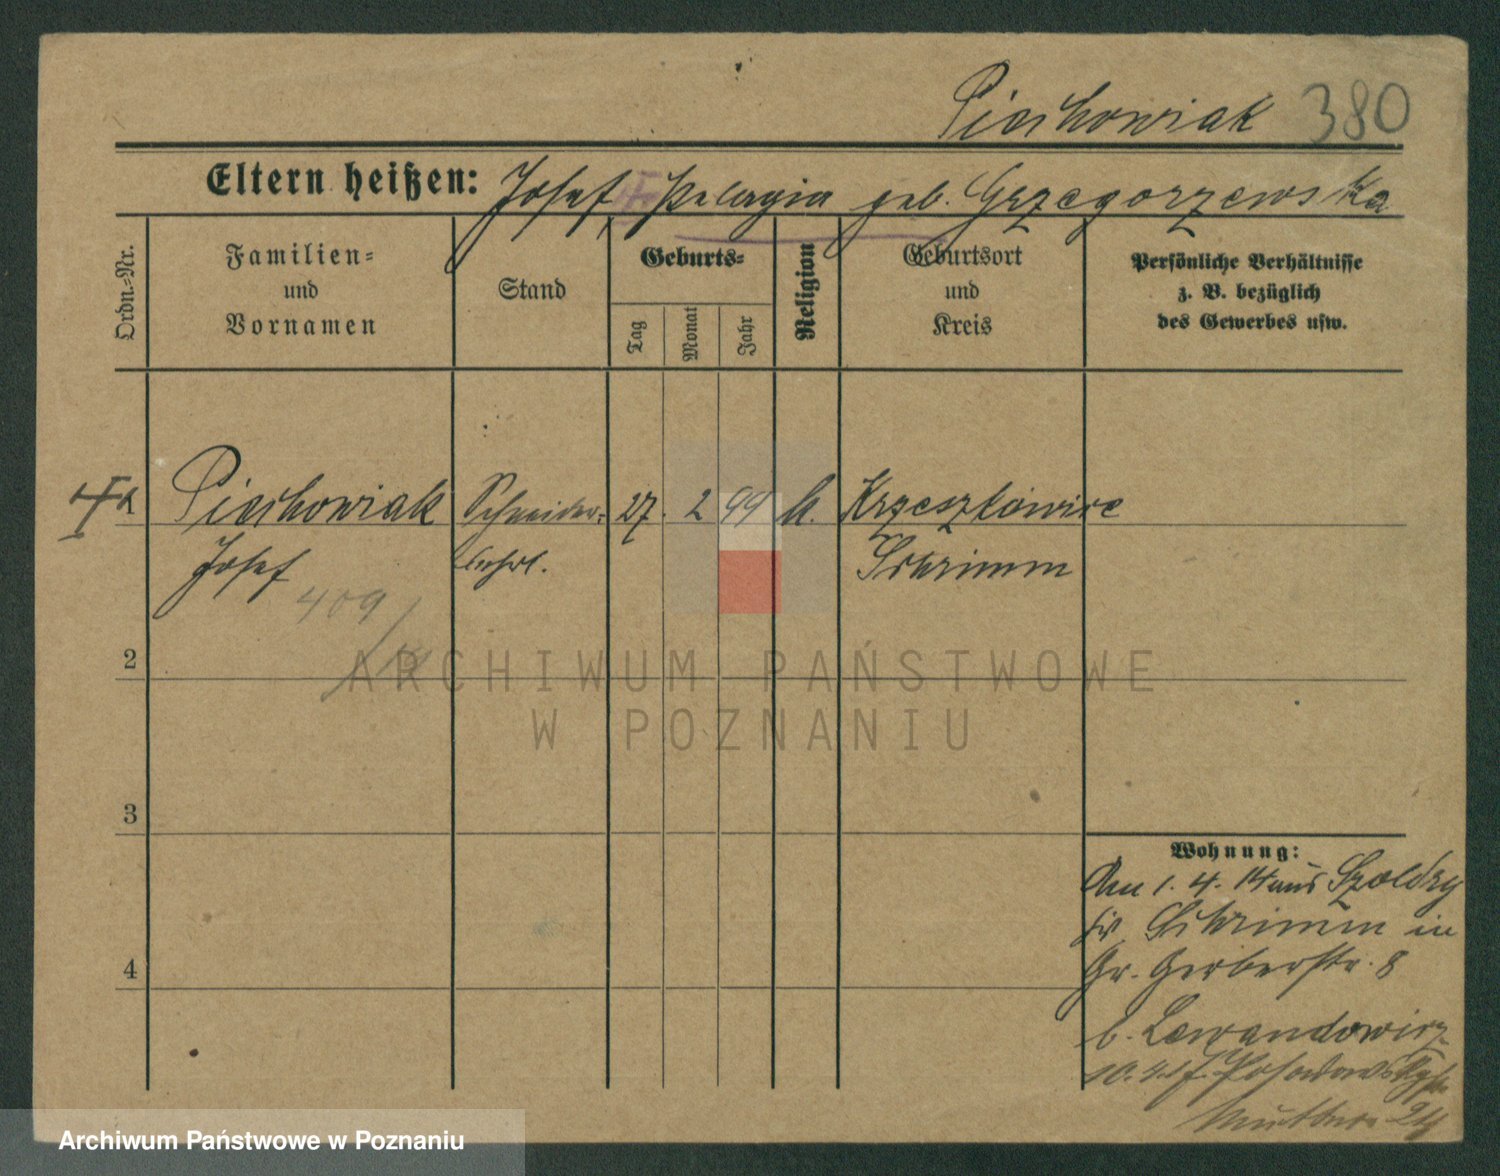 Piechowiak 380
Eltern heißen: Josef, Pelagia geb. Grzegorzewska
Ordn.-Nr.
Familien-
und
Vornamen
Stand
Geburts-
Tag
Monat
Jahr
Religion
Geburtsort
und
Kreis
Persönliche Verhältnisse
z. B. bezüglich
des Gewerbes usw.
1 Piechowiak Schneider- 27. 2 99 k.
Josef lehrl. Schrimm
409
2
3
4
Wohnung:
Am 1. 4. 14 aus Szoldry
Kr. Schrimm in
Gr. Gerberstr. 8
b. Lewandowicz
ARCHIWUM PAŃSTWOWE
W POZNANIU
Archiwum Państwowe w Poznaniu